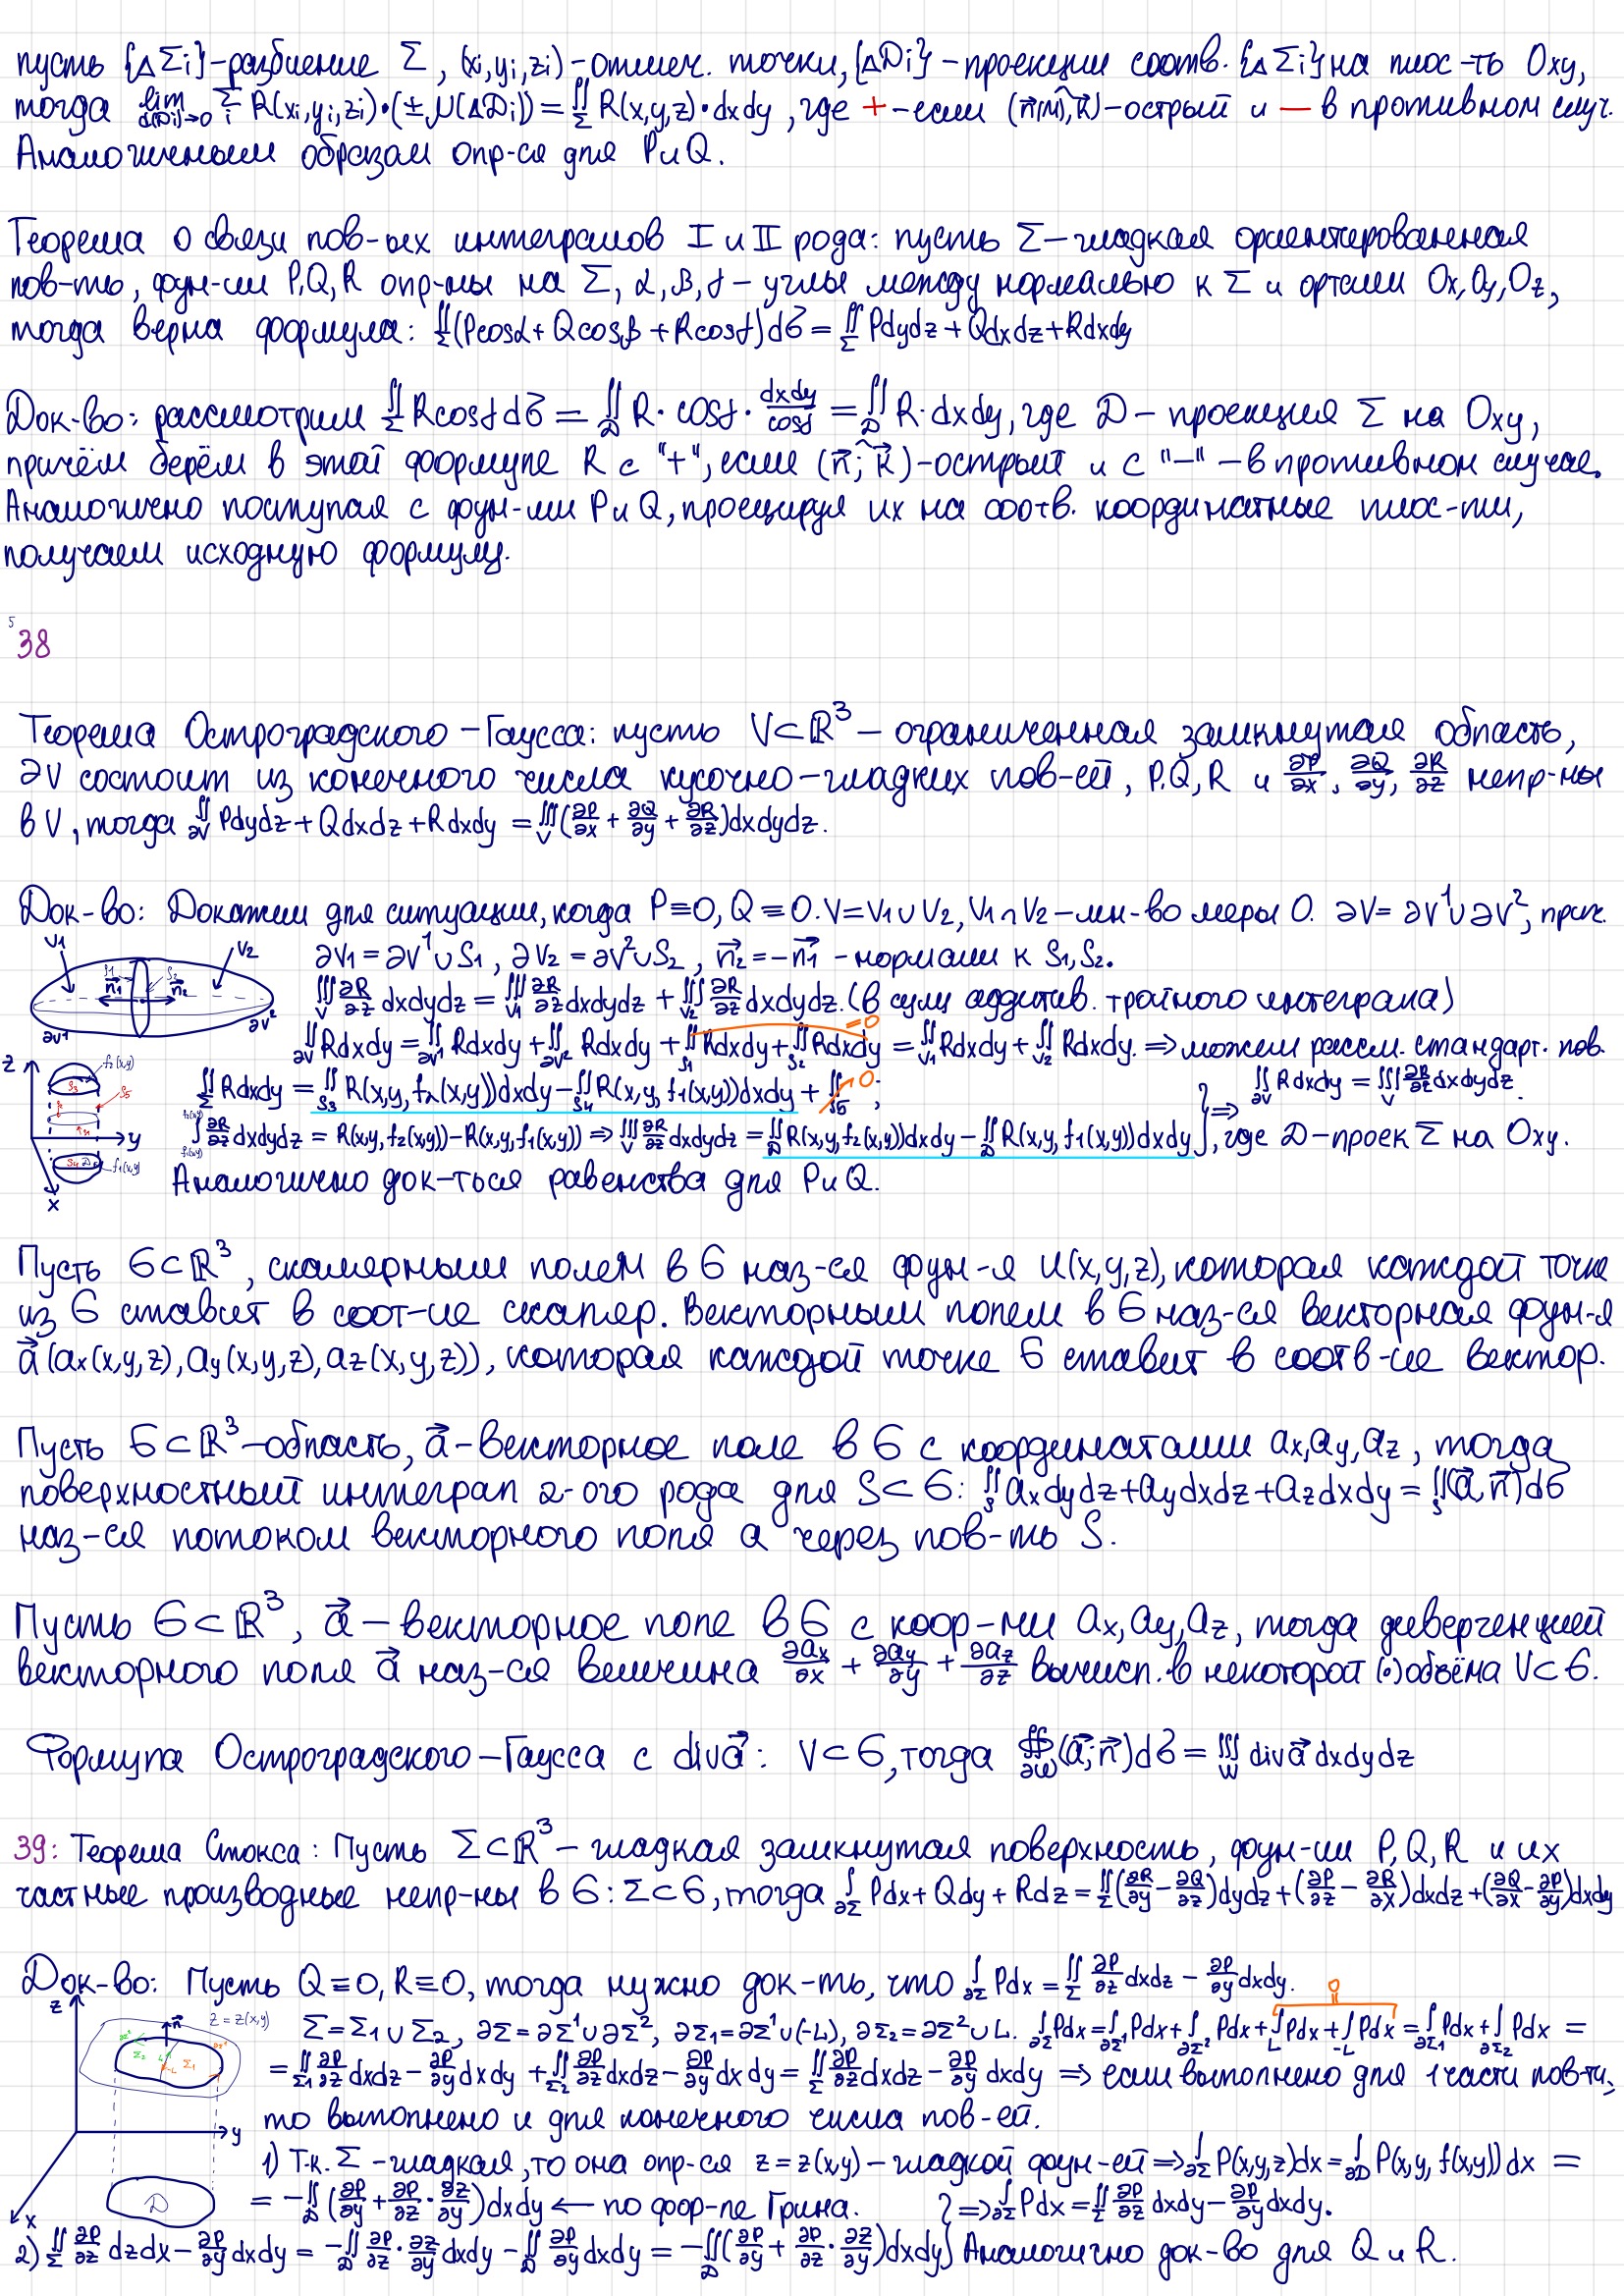 пусть {ΔΣi}-разбиение Σ, (xi,yi,zi)-отмеч. точки, {ΔDi}-проекции соотв. {ΔΣi} на плос-ть Oxy,
тогда lim d(Di)→0 Σi R(xi,yi,zi)·(±μ(ΔDi)) = ∬Σ R(x,y,z)·dxdy, где + -если (n⃗(M),^k⃗)-острый и — в противном случ.
Аналогичным образом опр-ся для P и Q.
Теорема о связи пов-ых интегралов I и II рода: пусть Σ-гладкая ориентированная
пов-ть, фун-ии P,Q,R опр-ны на Σ, α,β,γ - углы между нормалью к Σ и ортами Ox,Oy,Oz,
тогда верна формула: ∬Σ (Pcosα + Qcosβ + Rcosγ)dσ = ∬Σ Pdydz + Qdxdz + Rdxdy
Док-во: рассмотрим ∬Σ Rcosγdσ = ∬D R·cosγ·dxdy/cosγ = ∬D R·dxdy, где D - проекция Σ на Oxy,
причём берём в этой формуле R с "+", если (n⃗;^k⃗)-острый и с "-" - в противном случае.
Аналогично поступая с фун-ми P и Q, проецируя их на соотв. координатные плос-ти,
получаем исходную формулу.
5
38
Теорема Остроградского-Гаусса: пусть V⊂ℝ³ - ограниченная замкнутая область,
∂V состоит из конечного числа кусочно-гладких пов-ей, P,Q,R и ∂P/∂x, ∂Q/∂y, ∂R/∂z непр-ны
в V, тогда ∬∂V Pdydz + Qdxdz + Rdxdy = ∭V (∂P/∂x + ∂Q/∂y + ∂R/∂z)dxdydz.
Док-во: Докажем для ситуации, когда P≡0, Q≡0. V=V1∪V2, V1∩V2-мн-во меры 0. ∂V=∂V¹∪∂V², прич.
V1 V2 S1 n⃗1 S2 n⃗2 ∂V¹ ∂V²
∂V1=∂V¹∪S1, ∂V2=∂V²∪S2, n⃗2=-n⃗1 - нормали к S1,S2.
∭V ∂R/∂z dxdydz = ∭V1 ∂R/∂z dxdydz + ∭V2 ∂R/∂z dxdydz. (в силу аддитив. тройного интеграла)
∬∂V Rdxdy = ∬∂V¹ Rdxdy + ∬∂V² Rdxdy + ∬S1 Rdxdy + ∬S2 Rdxdy =0 = ∬V1 Rdxdy + ∬V2 Rdxdy. ⇒ можем рассм. стандарт. пов.
z f2(x,y) S3 S5 y S4 D f1(x,y) x
∬Σ Rdxdy = ∬S3 R(x,y,f2(x,y))dxdy - ∬S4 R(x,y,f1(x,y))dxdy + ∬S5 →0;
∬∂V Rdxdy = ∭V ∂R/∂z dxdydz.
∫f1(x,y)f2(x,y) ∂R/∂z dxdydz = R(x,y,f2(x,y))-R(x,y,f1(x,y)) ⇒ ∭V ∂R/∂z dxdydz = ∬D R(x,y,f2(x,y))dxdy - ∬D R(x,y,f1(x,y))dxdy } ⇒ , где D-проек Σ на Oxy.
Аналогично док-ться равенства для P и Q.
Пусть G⊂ℝ³, скалярным полем в G наз-ся фун-я U(x,y,z), которая каждой точке
из G ставит в соот-ие скаляр. Векторным полем в G наз-ся векторная фун-я
a⃗(ax(x,y,z), ay(x,y,z), az(x,y,z)), которая каждой точке G ставит в соотв-ие вектор.
Пусть G⊂ℝ³-область, a⃗-векторное поле в G с координатами ax,ay,az, тогда
поверхностный интеграл 2-ого рода для S⊂G: ∬S axdydz+aydxdz+azdxdy = ∬S (a⃗,n⃗)dσ
наз-ся потоком векторного поля a через пов-ть S.
Пусть G⊂ℝ³, a⃗ - векторное поле в G с коор-ми ax,ay,az, тогда дивергенцией
векторного поля a⃗ наз-ся величина ∂ax/∂x + ∂ay/∂y + ∂az/∂z вычисл. в некоторой (·) объёма V⊂G.
Формула Остроградского-Гаусса с diva⃗: V⊂G, тогда ∯∂W (a⃗;n⃗)dσ = ∭W diva⃗ dxdydz
39: Теорема Стокса: Пусть Σ⊂ℝ³ - гладкая замкнутая поверхность, фун-ии P,Q,R и их
частные производные непр-ны в G: Σ⊂G, тогда ∫∂Σ Pdx+Qdy+Rdz = ∬Σ (∂R/∂y - ∂Q/∂z)dydz + (∂P/∂z - ∂R/∂x)dxdz + (∂Q/∂x - ∂P/∂y)dxdy
Док-во: Пусть Q≡0, R≡0, тогда нужно док-ть, что ∫∂Σ Pdx = ∬Σ ∂P/∂z dxdz - ∂P/∂y dxdy.
z n⃗ z=z(x,y) ∂Σ² Σ2 L -L Σ1 ∂Σ¹ y D x
Σ=Σ1∪Σ2, ∂Σ=∂Σ¹∪∂Σ², ∂Σ1=∂Σ¹∪(-L), ∂Σ2=∂Σ²∪L. ∫∂Σ Pdx = ∫∂Σ¹ Pdx + ∫∂Σ² Pdx + ∫L Pdx + ∫-L Pdx =0 = ∫∂Σ1 Pdx + ∫∂Σ2 Pdx =
= ∬Σ1 ∂P/∂z dxdz - ∂P/∂y dxdy + ∬Σ2 ∂P/∂z dxdz - ∂P/∂y dxdy = ∬Σ ∂P/∂z dxdz - ∂P/∂y dxdy ⇒ если выполнено для 1 части пов-ти,
то выполнено и для конечного числа пов-ей.
1) Т.к. Σ-гладкая, то она опр-ся z=z(x,y)-гладкой фун-ей ⇒ ∫∂Σ P(x,y,z)dx = ∫∂D P(x,y,f(x,y))dx =
= -∬D (∂P/∂y + ∂P/∂z · ∂z/∂y)dxdy ← по фор-ле Грина. } ⇒ ∫∂Σ Pdx = ∬Σ ∂P/∂z dxdz - ∂P/∂y dxdy.
2) ∬Σ ∂P/∂z dzdx - ∂P/∂y dxdy = -∬D ∂P/∂z · ∂z/∂y dxdy - ∬D ∂P/∂y dxdy = -∬D (∂P/∂y + ∂P/∂z · ∂z/∂y)dxdy } Аналогично док-во для Q и R.